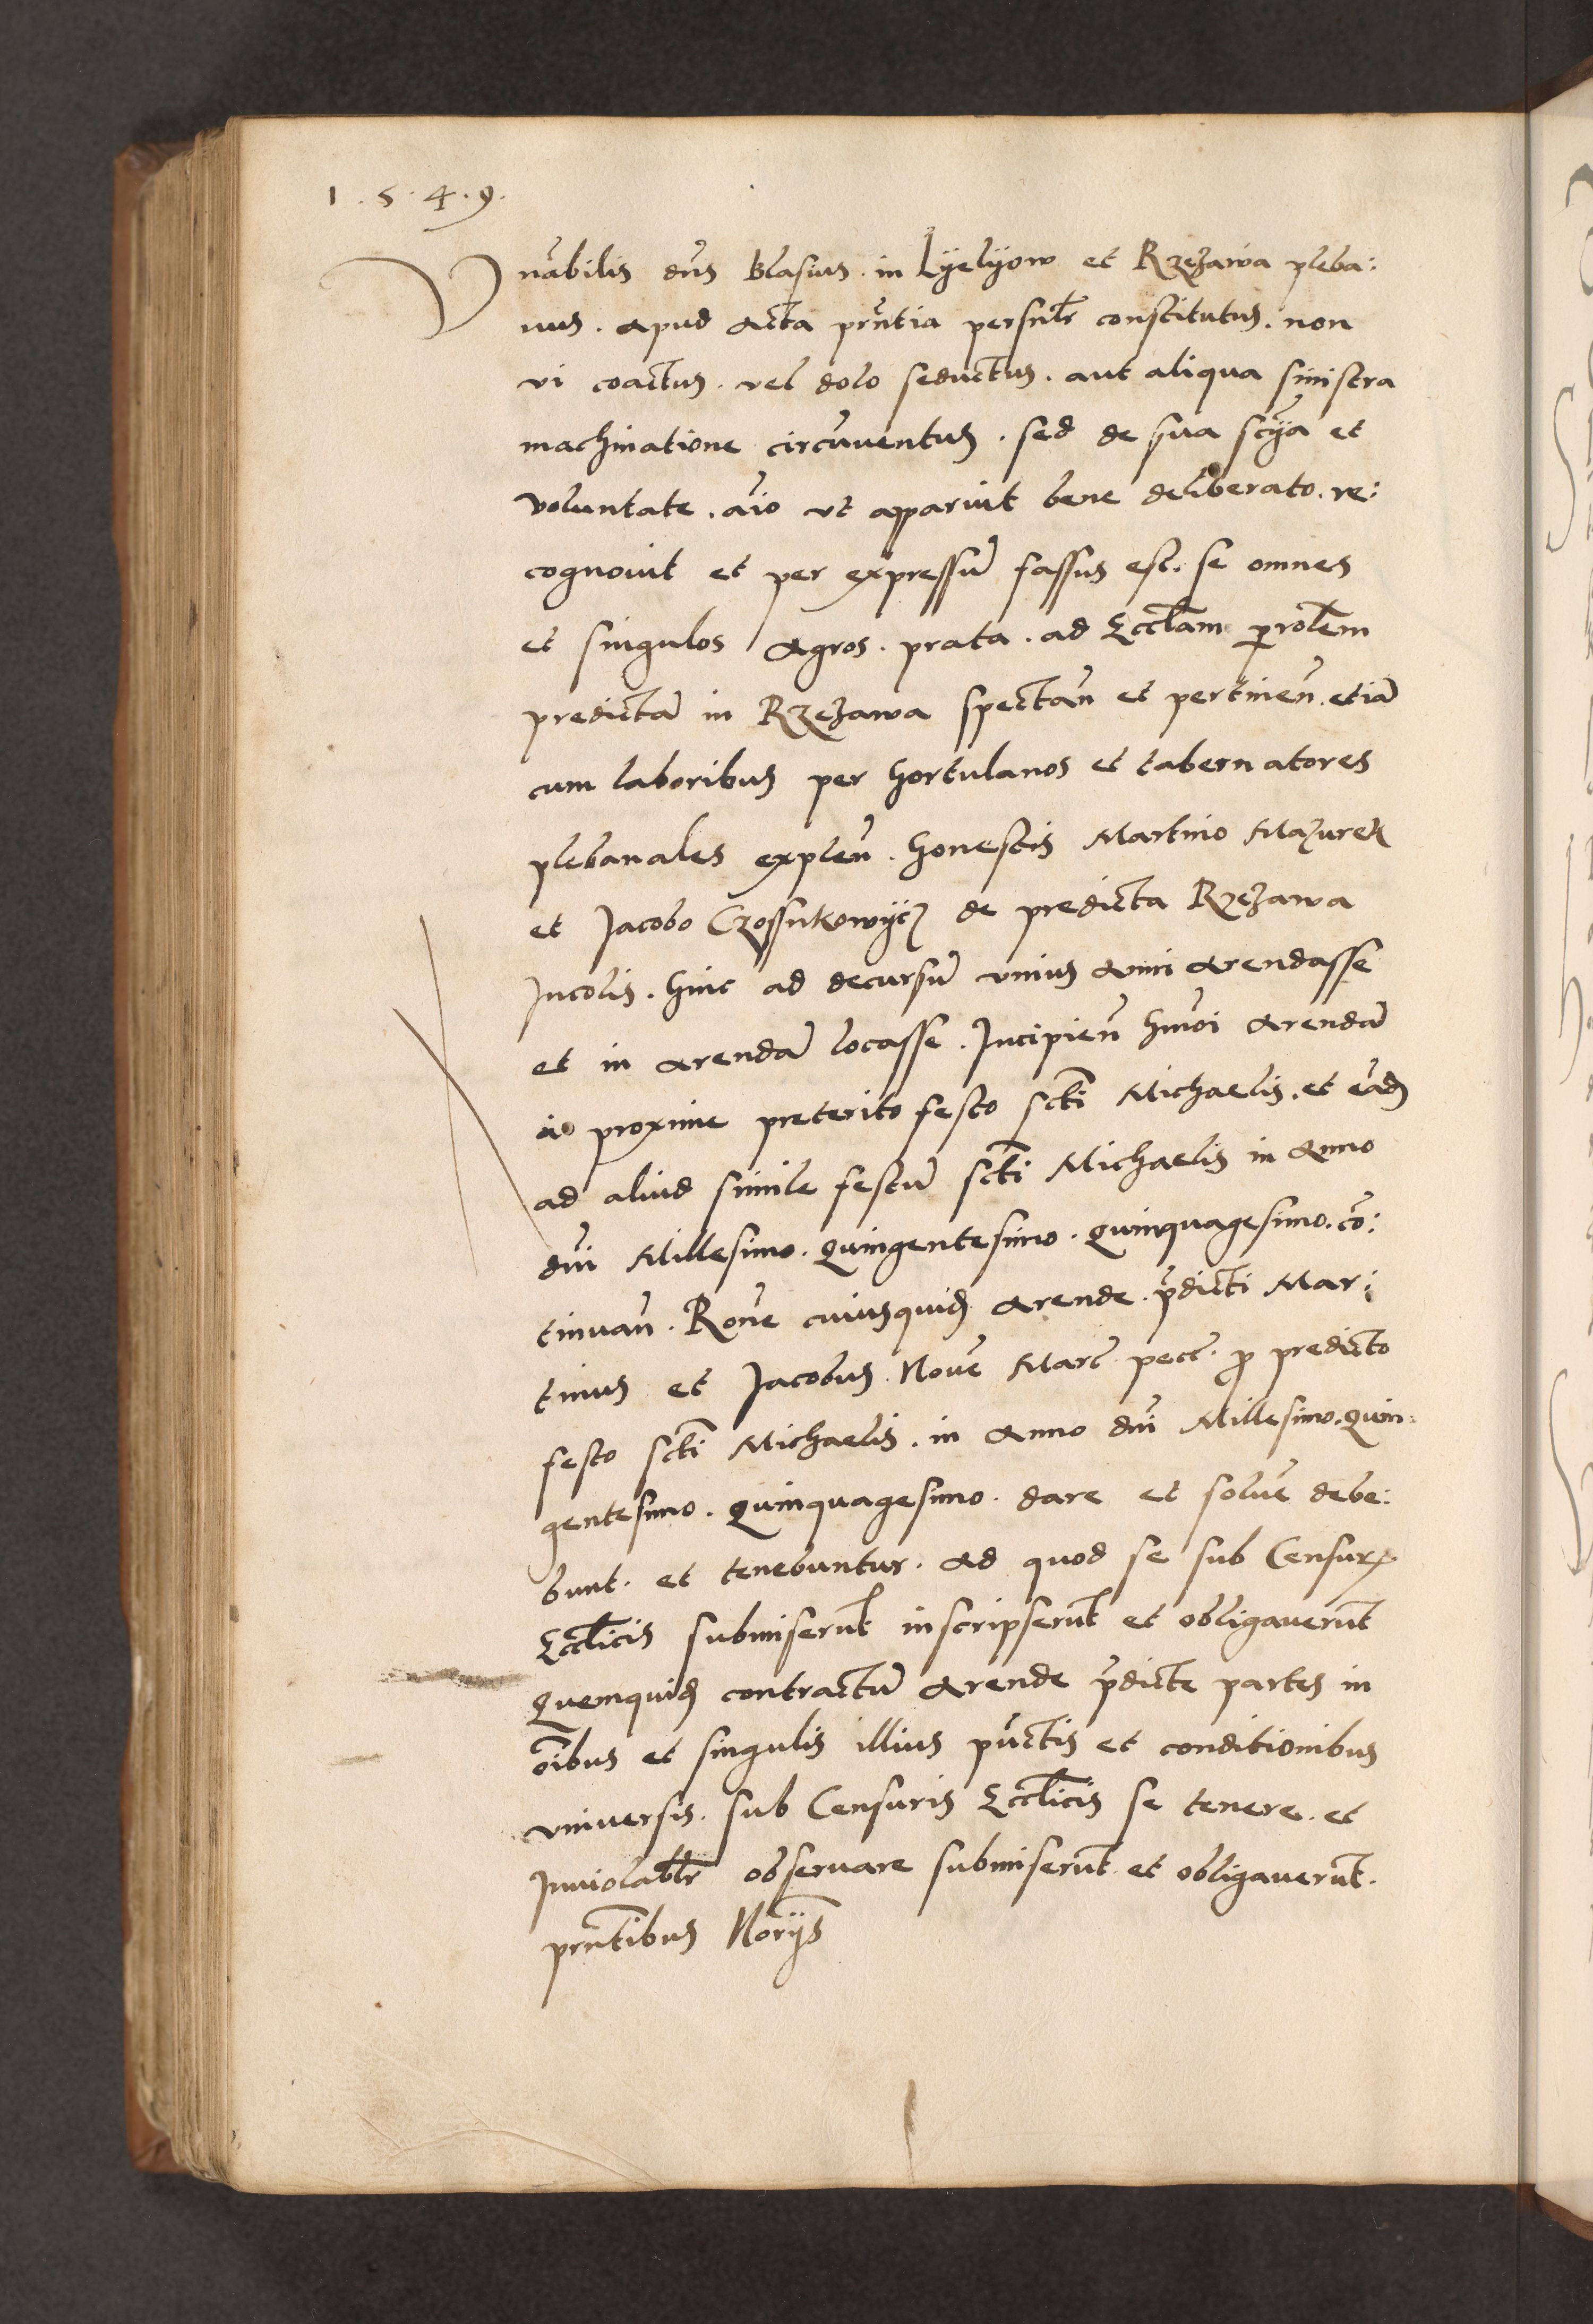 1.5.4.9.
Vn̄abilis dn̄s Blasius. in Lyelyow et Rzezawa pleba:
nus. apud acta prn̄tia persnlr̄ constitutus. non
vi coactus. vel dolo seductus. aut aliqua sinistra
machinatione circūuentus. sed de sua scīa et
voluntate. aīo vt apparuit bene deliberato. re:
cognouit et per expressū fassus est. se omnes
et singulos agros. prata. ad Eccl̄am ꝑrol̄em
predictā in Rzezawa spectan̄ et pertinen̄. etiā
cum laboribus per hortulanos et tabernatores
plebanales explen̄. honestis Martino Mazurek
et Jacobo Czossukowycz de predicta Rzezawa
Incolis. hinc ad decursū vnius anni arendasse
et in arendā locasse. Incipien̄ hm̄oi arendā
a proxime preterito festo scti̅ Michaelis. et eād
ad aliud simile festū scti̅ Michaelis in anno
dn̄i Millesimo. quingentesimo. quinquagesimo. cō:
tinuan̄. Ron̄e cuiusquid arende. p̄dicti Mar:
tinus et Jacobus. Noue Marc̄ pecc̄. ꝓ predicto
festo scti̅ Michaelis. in anno dn̄i Millesimo. quin:
gentesimo. quinquagesimo. dare et solue̅ debe:
bunt. et tenebuntur. ad quod se sub Censurꝭ.
Eccl̄icis submiserūt inscripserūt et obligauerūt
quemquid contractū arende p̄dicte partes in
oībus et singulis illius pūctis et conditionibus
vniuersis. sub Censuris Eccl̄icis se tenere. et
Inuiolablr̄ obseruare submiserūt et obligauerūt.
prn̄tibus Norijs̄